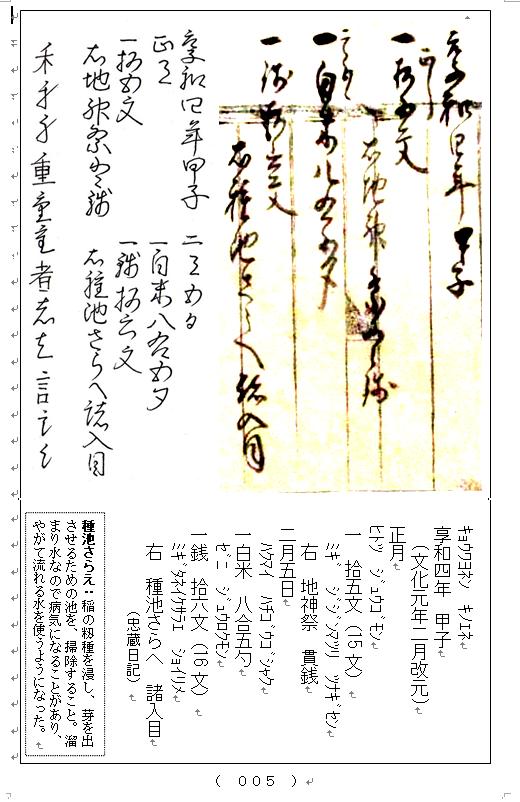 享和四年 甲子
正月
一拾五文
右地神祭貫銭
二月五日
一白米八合五勺
一銭拾六文
右種池さらへ諸入目
享和四年甲子
正月
一拾五文
右地神祭貫銭
二月五日
一白米八合五勺
一銭拾六文
右種池さらへ諸入目
ｷｮｳﾜﾖﾈﾝ ｷﾉｴﾈ
享和四年 甲子
(文化元年二月改元)
正月
ﾋﾄﾂ ｼﾞｭｳｺﾞﾓﾝ
一 拾五文(15文)
ﾐｷﾞ ｼﾞｼﾞﾝﾏﾂﾘ ﾂﾅｷﾞｾﾞﾝ
右 地神祭 貫銭
二月五日
ﾊｸﾏｲ ﾊﾁｺﾞｳｺﾞｼｬｸ
一白米 八合五勺
ｾﾞﾆ ｼﾞｭｳﾛｸﾓﾝ
一銭 拾六文(16文)
ﾐｷﾞ ﾀﾈｲｹｻﾗｴ ｼｮｲﾘﾒ
右 種池さらへ 諸入目
(忠蔵日記)
種池さらえ：稲の籾種を浸し、芽を出
させるための池を、掃除すること。溜
まり水なので病気になることがあり、
やがて流れる水を使うようになった。
( 005 )